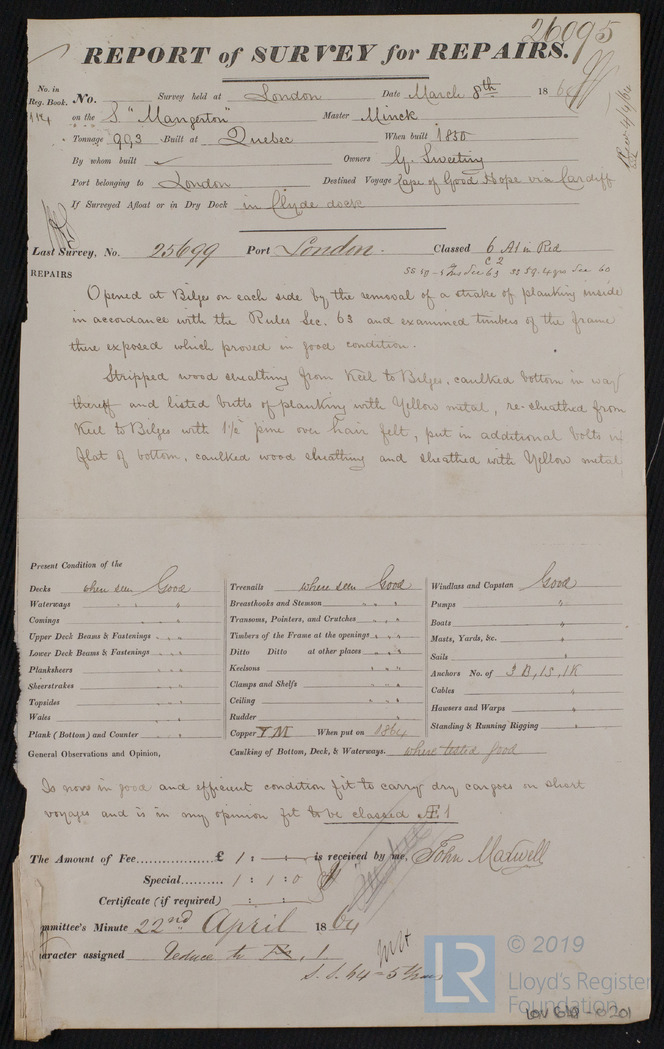 26095
REPORT of SURVEY for REPAIRS.
No. in Reg. Book. No. Survey held at London Date March 8th 1864
on the S. "Mangerton" Master Minck
Tonnage 993 Built at Quebec When built 1850
By whom built Owners G. Sweeting
Port belonging to London Destined Voyage Cape of Good Hope via Cardiff
If Surveyed Afloat or in Dry Dock in Clyde dock
Last Survey, No. 25699 Port London. Classed 6 A1 in Red
REPAIRS
Opened at Bilges on each side by the removal of a strake of planking inside
in accordance with the Rules Sec. 63 and examined timbers of the frame
there exposed which proved in good condition.
Stripped wood sheathing from Keel to Bilges, caulked bottom in way
thereof and listed butts of planking with Yellow metal, re-sheathed from
Keel to Bilges with 1½ pine over hair felt, put in additional bolts in
flat of bottom, caulked wood sheathing and sheathed with Yellow metal
Present Condition of the
Decks when seen Good Treenails where seen Good Windlass and Capstan Good
Waterways " " " Breasthooks and Stemson " " " Pumps "
Comings " " " Transoms, Pointers, and Crutches " " " Boats "
Upper Deck Beams & Fastenings " " " Timbers of the Frame at the openings " " " Masts, Yards, &c. "
Lower Deck Beams & Fastenings " " " Ditto Ditto at other places " " " Sails "
Planksheers " " Keelsons " " " Anchors No. of 3B, 1S, 1K
Sheerstrakes " " " Clamps and Shelfs " " " Cables "
Topsides " " Ceiling " " " Hawsers and Warps "
Wales " " Rudder " Standing & Running Rigging "
Plank (Bottom) and Counter " " " Copper YM When put on 1864
General Observations and Opinion, Caulking of Bottom, Deck, & Waterways. where tested good
Is now in good and efficient condition fit to carry dry cargoes on short
voyages and is in my opinion fit to be classed Æ1
The Amount of Fee £ 1 : is received by me, John Maxwell
Special 1 : 1 : 0
Certificate (if required) : :
mmittee's Minute 22nd April 1864
aracter assigned Reduce to Æ 1
S. S. 64 - 5 Years
LR © 2019
Lloyd's Register
Foundation